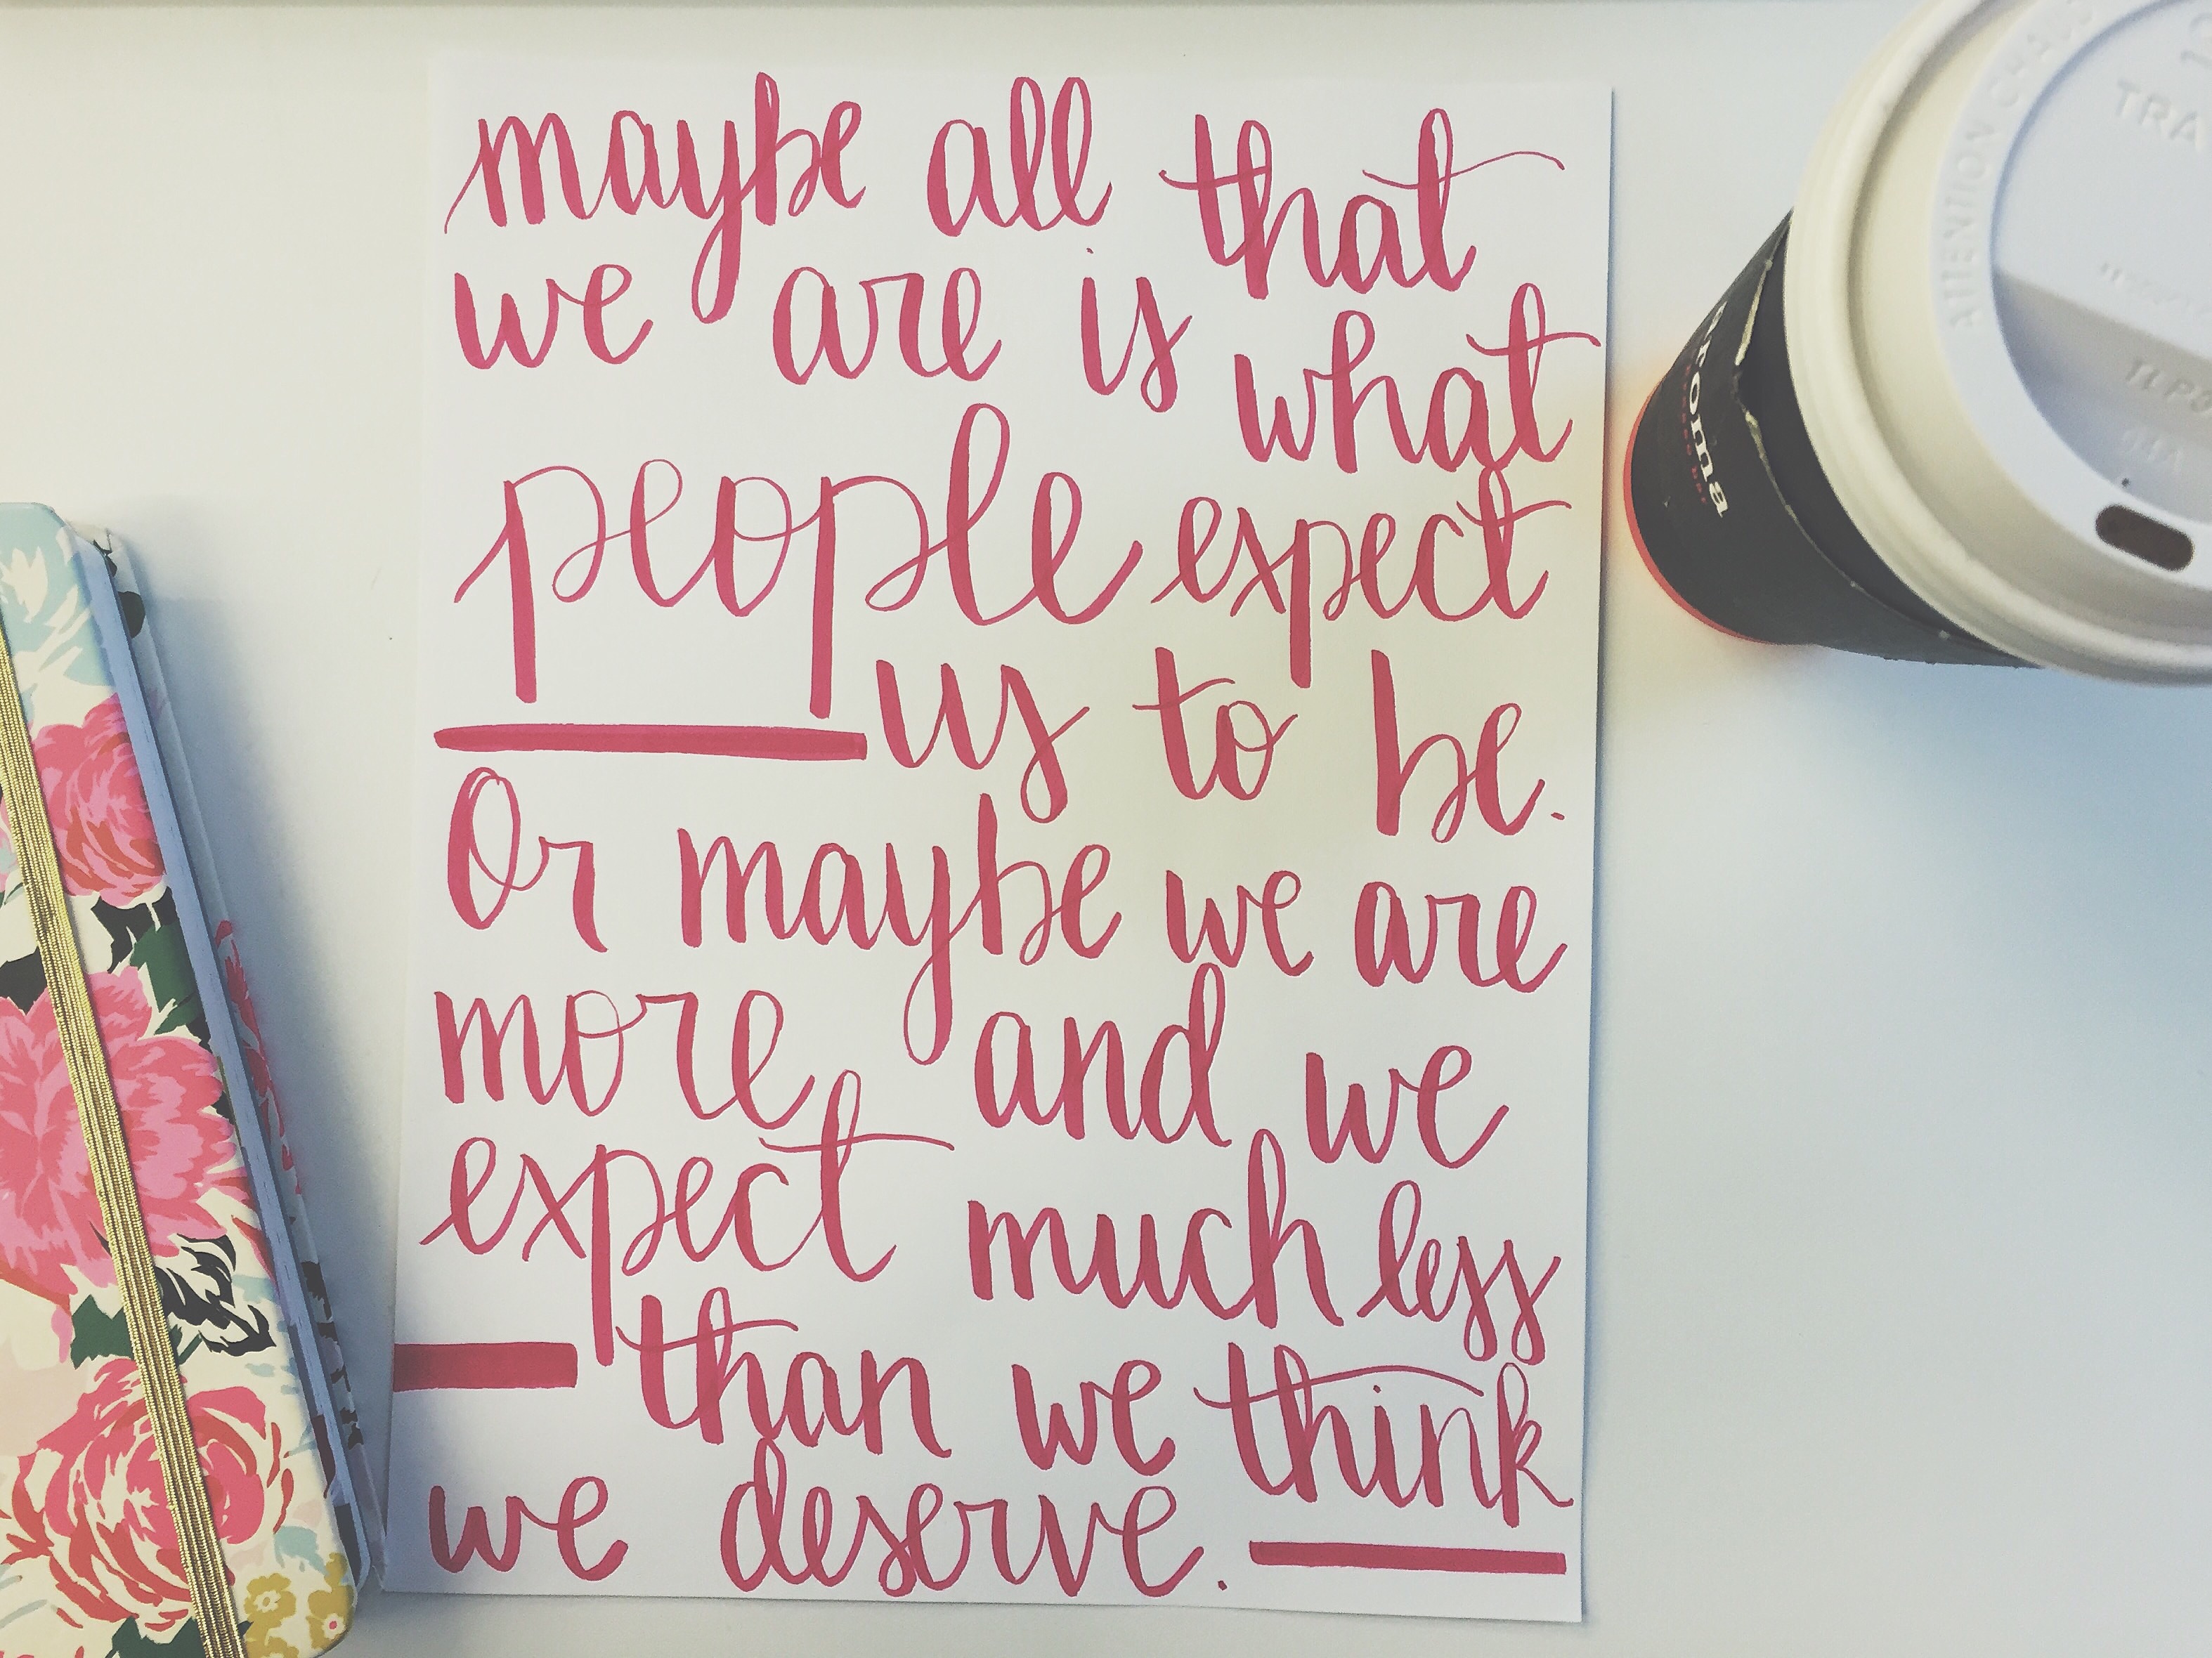 maybe all that
we are is what
people expect
us to be.
Or maybe we are
more and we
expect much less
than we think
we deserve.
ATTENTION
TRA